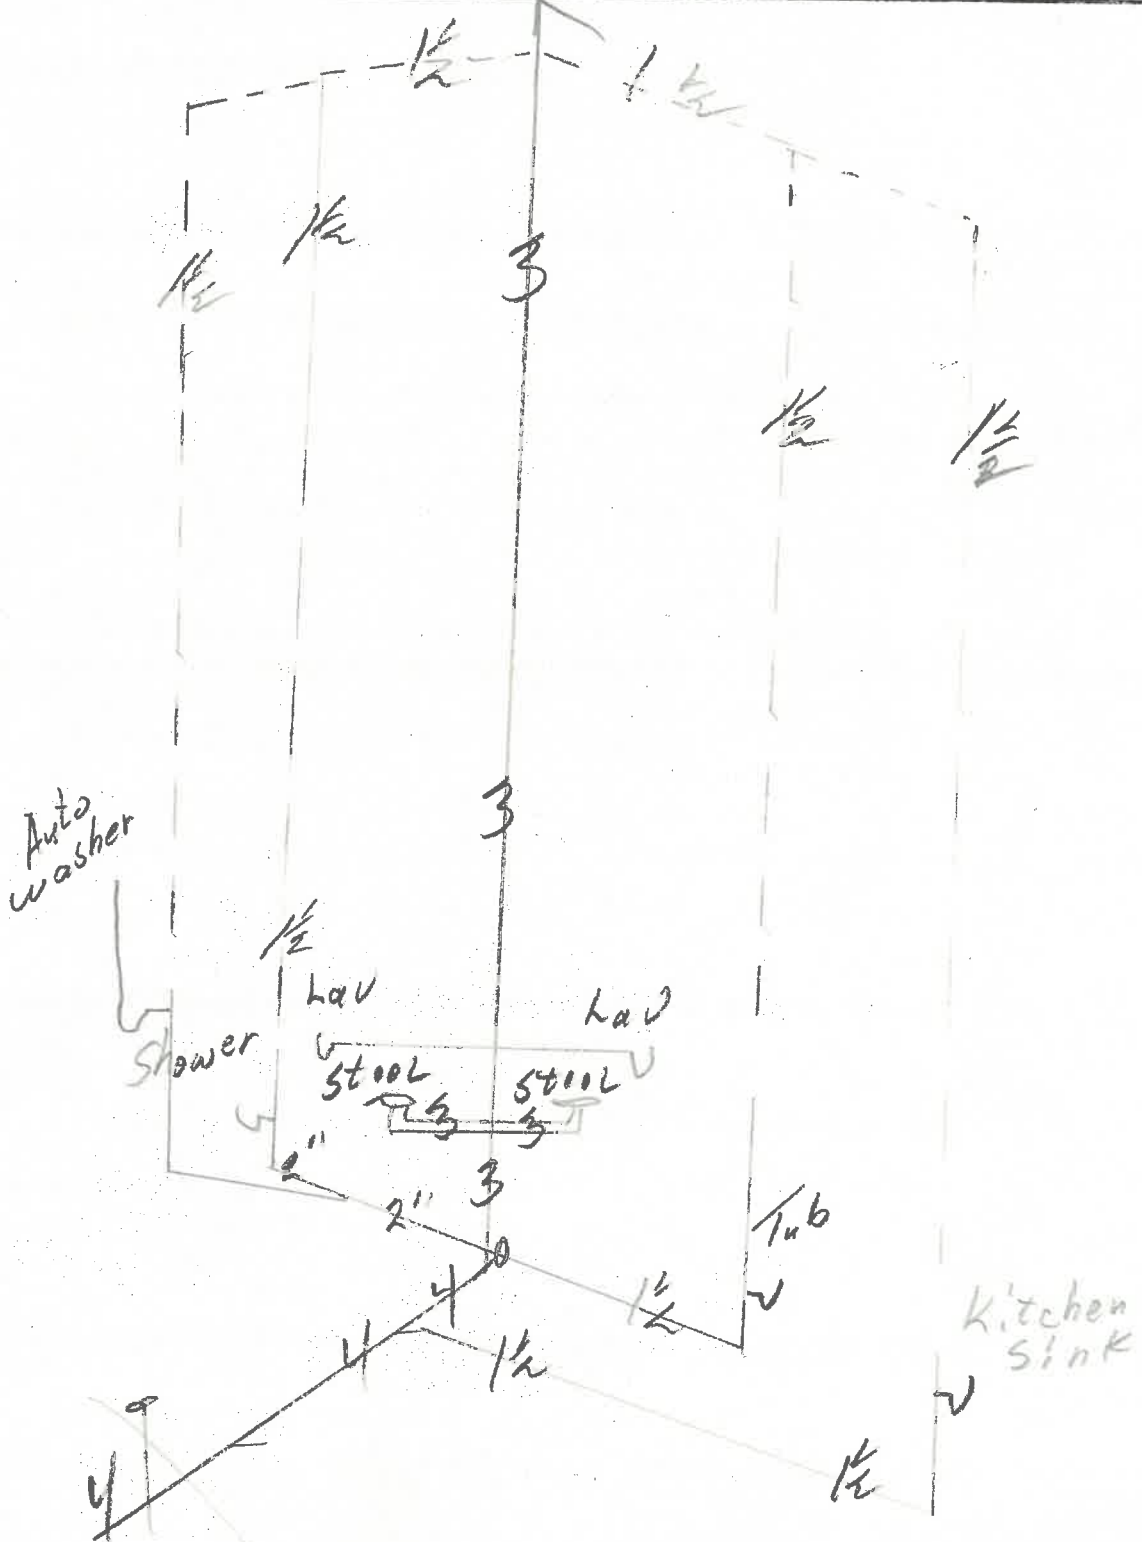 1½
1½
1½
1½
3
1½
1½
3
Auto
washer
1½
Lav
Lav
Shower
Stool
Stool
3
3
2"
3
2"
Tub
4
1½
4
1½
Kitchen
Sink
4
1½